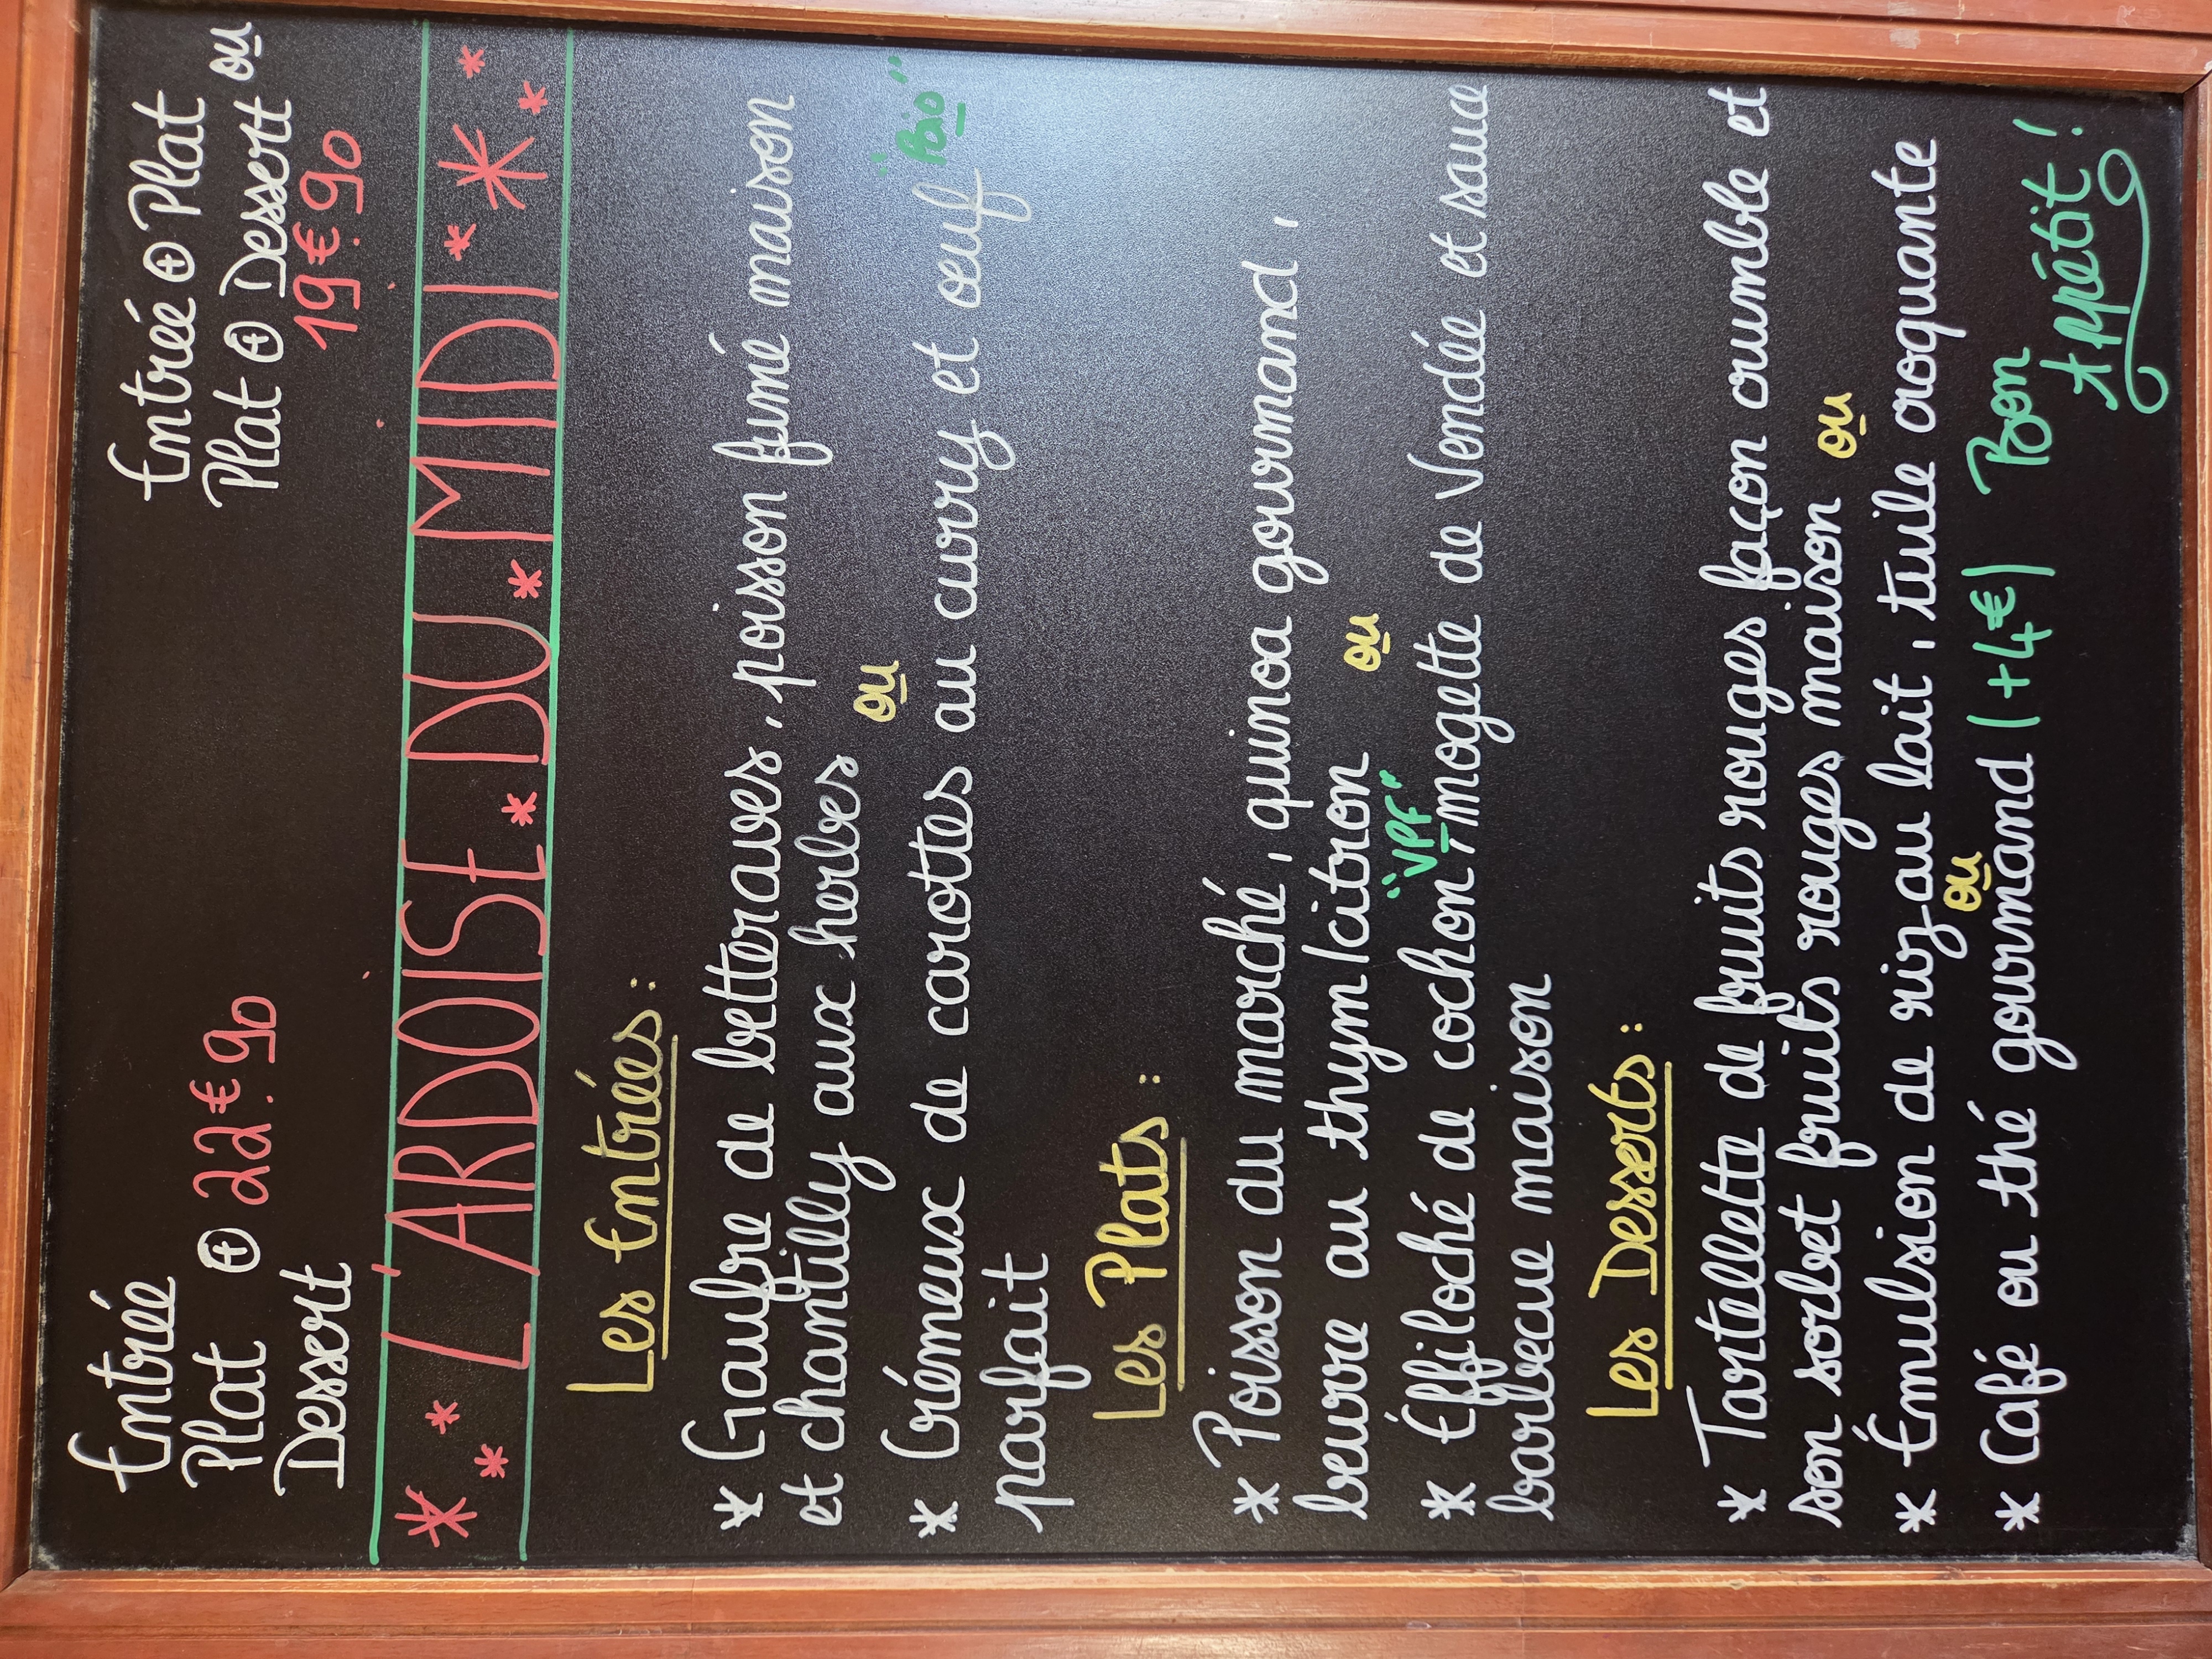 Entrée
Plat ⊕ 22€90
Dessert
Entrée ⊕ Plat
Plat ⊕ Dessert ou
19€90
* * * L'ARDOISE * DU * MIDI * * * *
Les Entrées :
* Gaufre de betteraves, poisson fumé maison
et chantilly aux herbes
ou
* Crémeux de carottes au curry et oeuf "Bio"
parfait
Les Plats :
* Poisson du marché, quinoa gourmand,
beurre au thym/citron
ou
"VPF"
* Éffiloché de cochon, mogette de Vendée et sauce
barbecue maison
Les Desserts :
* Tartellette de fruits rouges façon crumble et
son sorbet fruits rouges maison ou
* Émulsion de riz au lait, tuile croquante
ou
* Café ou thé gourmand (+4€) Bon
Appétit !